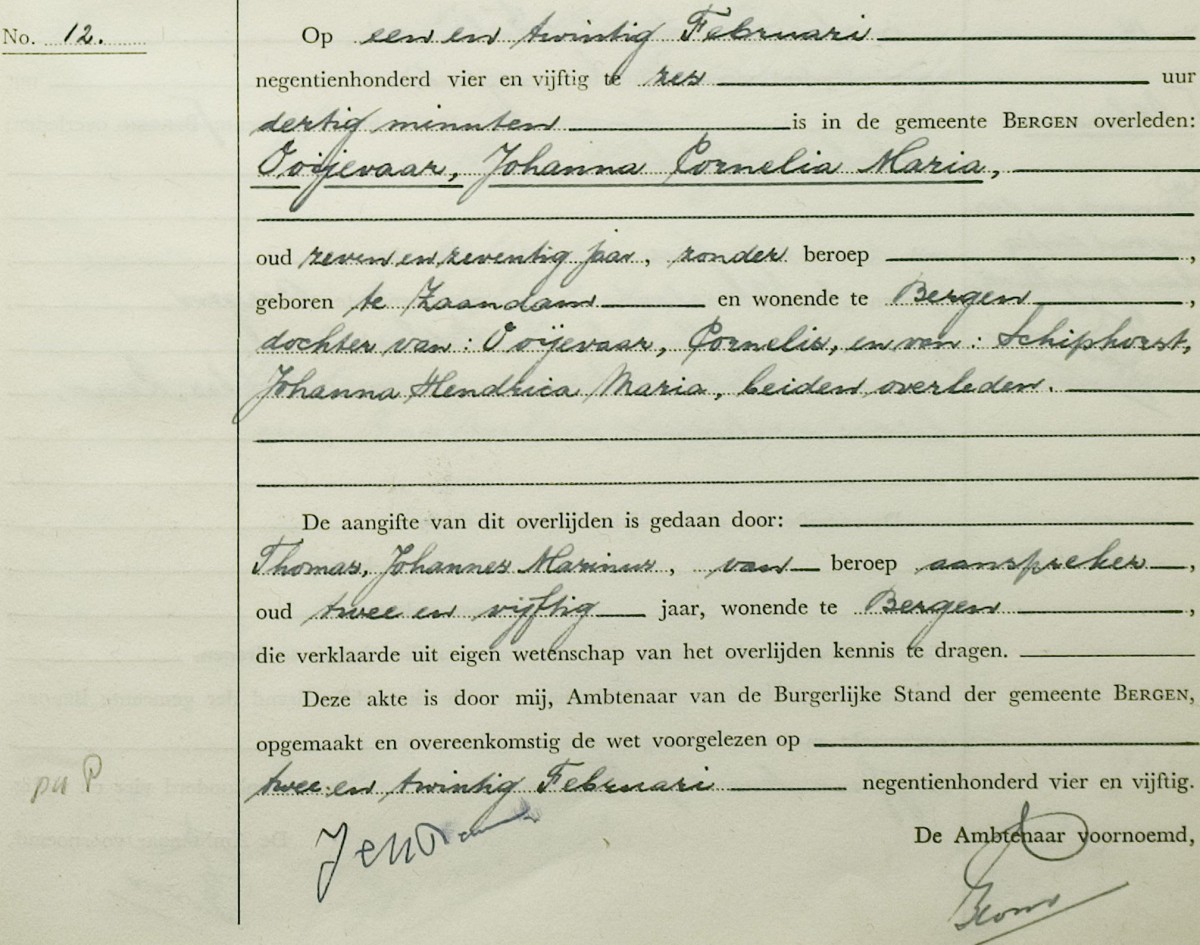 No. 12.
Op een en twintig Februari
negentienhonderd vier en vijftig te zes uur
dertig minuten is in de gemeente BERGEN overleden:
Ooijevaar, Johanna Cornelia Maria,
oud zeven en zeventig jaar, zonder beroep ,
geboren te Zaandam en wonende te Bergen ,
dochter van: Ooijevaar, Cornelis, en van: Schiphorst,
Johanna Hendrica Maria, beiden overleden.
De aangifte van dit overlijden is gedaan door:
Thomas, Johannes Marinus, van beroep aanspreker ,
oud twee en vijftig jaar, wonende te Bergen ,
die verklaarde uit eigen wetenschap van het overlijden kennis te dragen.
Deze akte is door mij, Ambtenaar van de Burgerlijke Stand der gemeente BERGEN,
opgemaakt en overeenkomstig de wet voorgelezen op
twee en twintig Februari negentienhonderd vier en vijftig.
De Ambtenaar voornoemd,